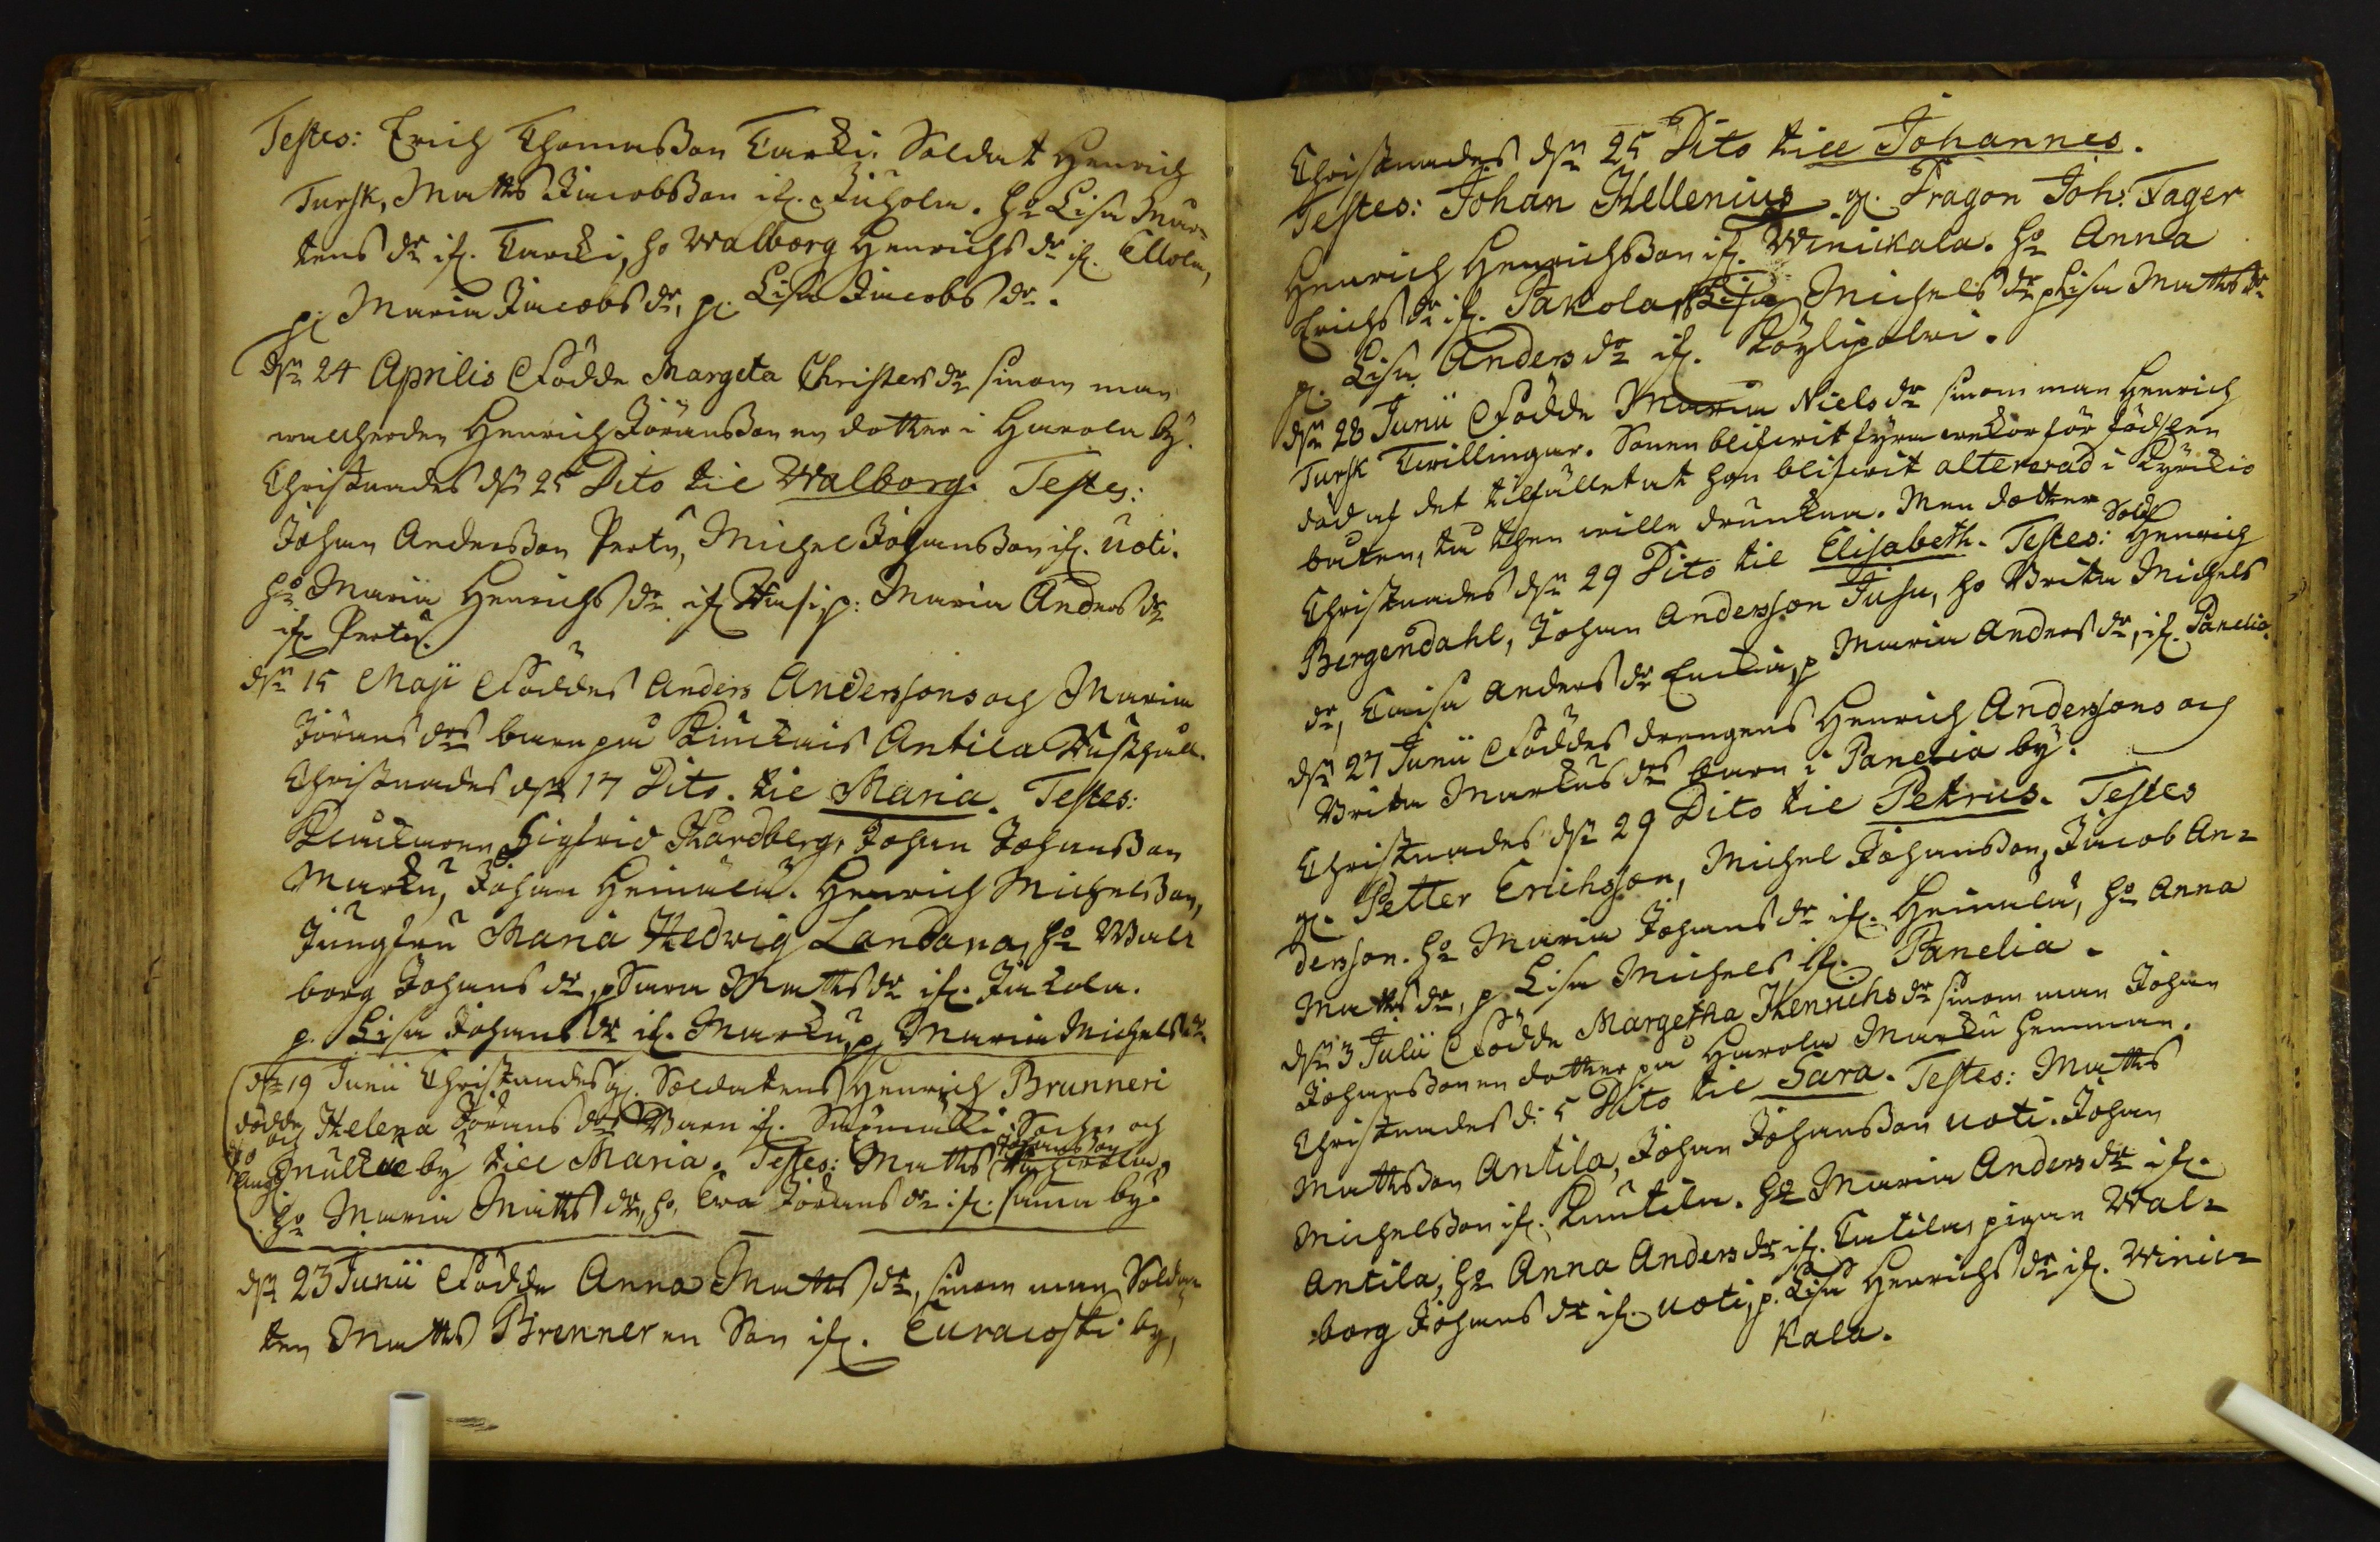 Testes: Erich Thomasson Tarki. Soldat Henrich
Tursk, Matts Jacobsson if. Juhola. ho Lisa Mar=
tens dr if. Tarcki, ho Walborg Henrichs dr if.
p. Maria Jacobs dr, p. Lisa Jacobs dr.
dn 24 Aprilis Födde Margeta Christers dr sinom man
wallherden Henrich Jöransson en dotter i Harola by.
Christnades dn 25 Dito til Walborg. Testes:
Johan Andersson Pertu, Michel Johansson if. Uoti.
ho Maria Henrichs dr if p: Maria Anders dr
if Pertu.
dn 15 Maji Föddes Anders Anderssons och Maria
Jörans drs barn på Kiuckais Antila Rusthåll.
Christnades dn 17 Dito. til Maria. Testes:
Klockaren Sigfrid Hardberg, Johan Johansson
Marku, Johan Heinälä. Henrich Michelsson,
Jungfru Maria Hedwig Landana, ho Wal=
borg Johans dr, p Sara Matts dr if. Jakola.
p. Lisa Johans dr if. Marku, p Maria Michels dr.
dn 19 Junii Christnades gl. Soldatens Henrich Brunneri
och Helena Jörans drs Barn if. Säkymäki Sochn och
by till Maria. Testes: Matts Johansson
ho Maria Matts dr, ho, Ewa Jörans dr if: sama by.
dödde
dn 23 Junii Födde Anna Matts dr, sinom man Solda=
ten Matts Brenner en Son if. Eurakoski by,
Christnades dn 25 Dito till Johannes.
Testes: Johan Hellenius gl. Dragon Joh: Fager
Henrich Henrichsson if. Winickala. ho Anna
Erichs dr if. Pakola, Michels dr p Lisa Matts dr.
p. Lisa Anders dr if. Köylipolwi.
dn 28 Junii Födde Maria Niels dr sinom man Henrich
Tursk Twillingar. Sonen blifwit fyra weckor för födslen
död af det tilfället at hon blifwit altererad i Kyrkio
båten, då then wille drunkna. Men dotter
Christnades dn 29 Dito til Elisabeth. Testes: Sold Henrich
Bergendahl, Johan Andersson Jusu, ho Brita Michels
dr, Caisa Anders dr, p Maria Anders dr, if. Panelia.
dn 27 Junii Föddes drengens Henrich Anderssons och
Brita Markus drs barn i Panelia by.
Christnades dn 29 Dito til Petrus. Testes
gl. Petter Erichsson, Michel Johansson, Jacob An=
dersson. ho Maria Johans dr if. Heinälä, ho Anna
Matts dr, p. Lisa Michels if. Panelia.
dn 3 Julii Födde Margetha Henrichs dr sinom man Johan
Johansson en dotter på Harola Marku hemman.
Christnades d: 5 Dito til Sara. Testes: Matts
Mattsson Antila, Johan Johansson Uoti. Johan
Michelsson if. Knutila. ho Maria Anders dr if.
Antila, ho Anna Anders dr if. Eutila, pigan Wal=
borg Johans dr if. Uoti, p. Lisa Henrichs dr if. Winic=
kala.